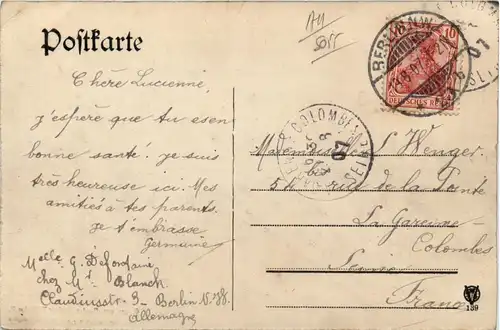 Postkarte
Chère Lucienne,
j'espère que tu es en
bonne santé. je suis
très heureuse ici. Mes
amitiés à tes parents.
je t'embrasse
Germaine
Melle G. Defontaine
chez Mr Blanck
Claudiusstr. 3 - Berlin N.W.
Allemagne
BERLIN N.W.
10
DEUTSCHES REICH
COLOMBES
SEINE
07
Mademoiselle L Wenger
54 rue de la Pointe
La Garenne-
Colombes
Seine
France
139